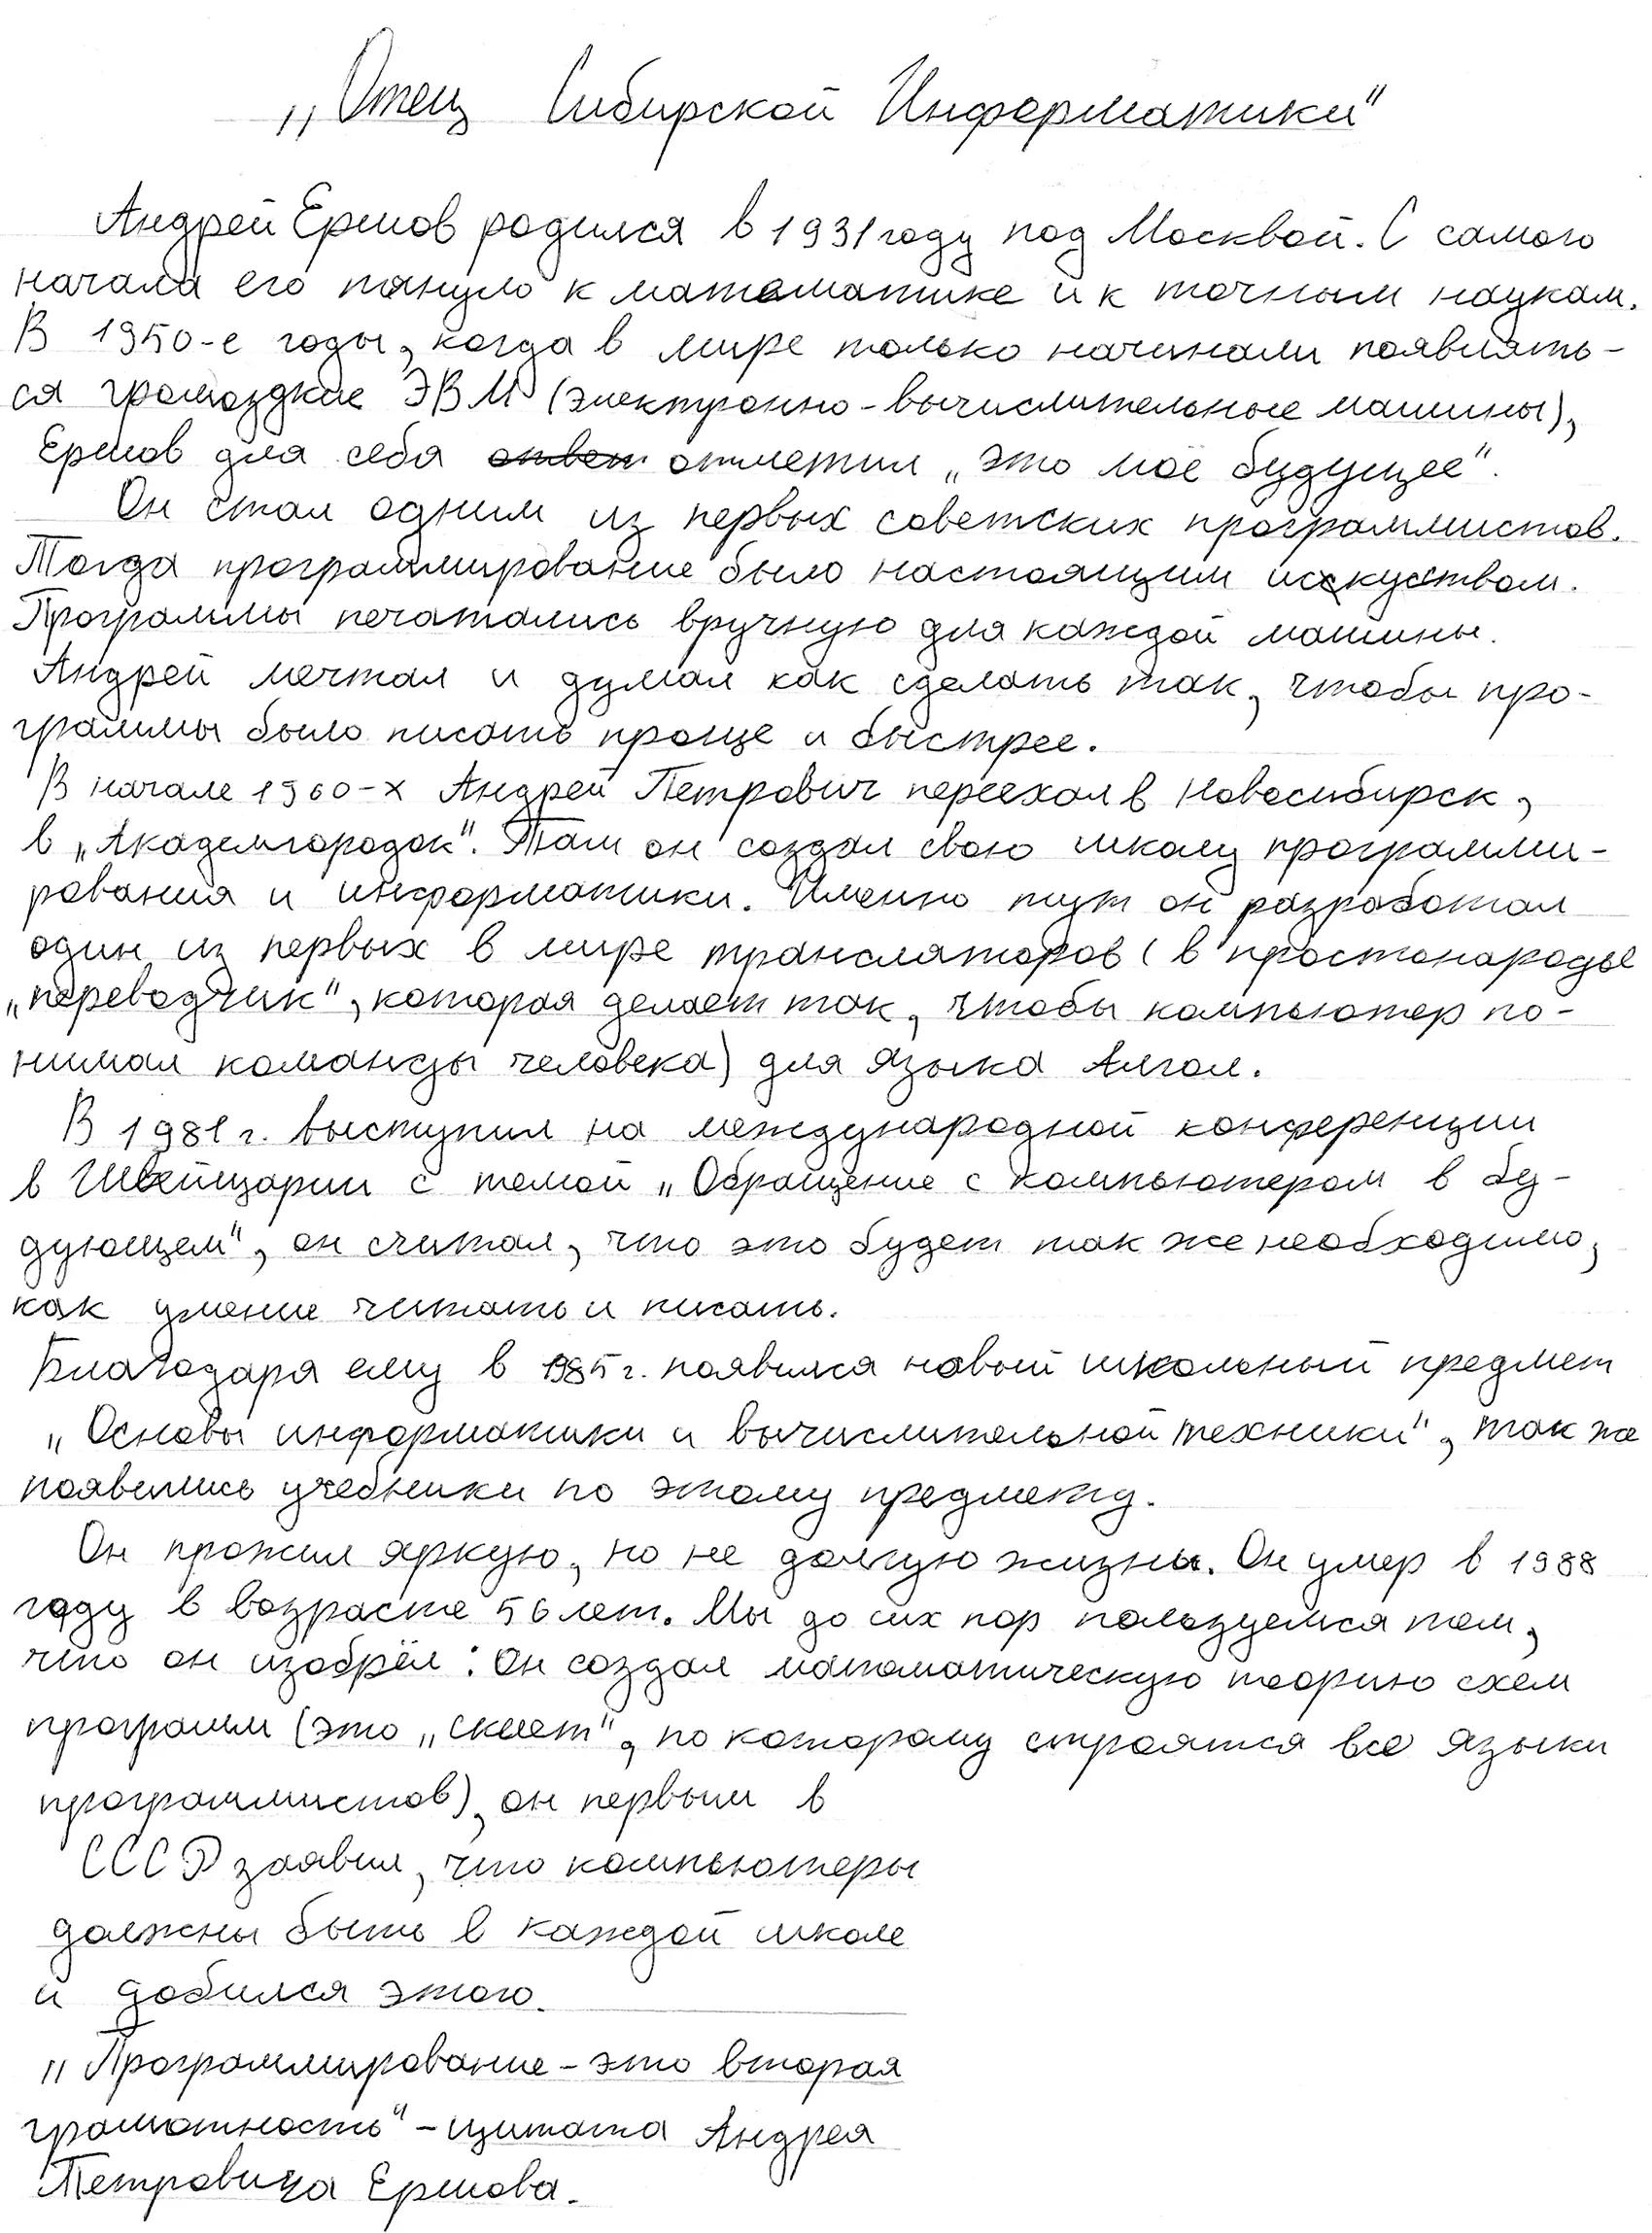 „Отец Сибирской Информатики"
Андрей Ершов родился в 1931 году под Москвой. С самого
начала его тянуло к математике и к точным наукам.
В 1950-е годы, когда в мире только начинали появлять-
ся громоздкие ЭВМ (электронно-вычислительные машины),
Ершов для себя ответ отметил „это моё будущее".
Он стал одним из первых советских программистов.
Тогда программирование было настоящим искусством.
Программы печатались вручную для каждой машины.
Андрей мечтал и думал как сделать так, чтобы про-
граммы было писать проще и быстрее.
В начале 1960-х Андрей Петрович переехал в Новосибирск,
в „Академгородок". Там он создал свою школу программи-
рования и информатики. Именно тут он разработал
один из первых в мире трансляторов (в простонародье
„переводчик", которая делает так, чтобы компьютер по-
нимал команды человека) для языка Алгол.
В 1981 г. выступил на международной конференции
в Швейцарии с темой „Обращение с компьютером в бу-
дующем", он считал, что это будет так же необходимо,
как умение читать и писать.
Благодаря ему в 1985 г. появился новый школьный предмет
„Основы информатики и вычислительной техники", так же
появились учебники по этому предмету.
Он прожил яркую, но не долгую жизнь. Он умер в 1988
году в возрасте 56 лет. Мы до сих пор пользуемся тем,
что он изобрёл: Он создал математическую теорию схем
программ (это „скелет", по которому строятся все языки
программистов), он первым в
СССР заявил, что компьютеры
должны быть в каждой школе
и добился этого.
„Программирование - это вторая
грамотность" - цитата Андрея
Петровича Ершова.